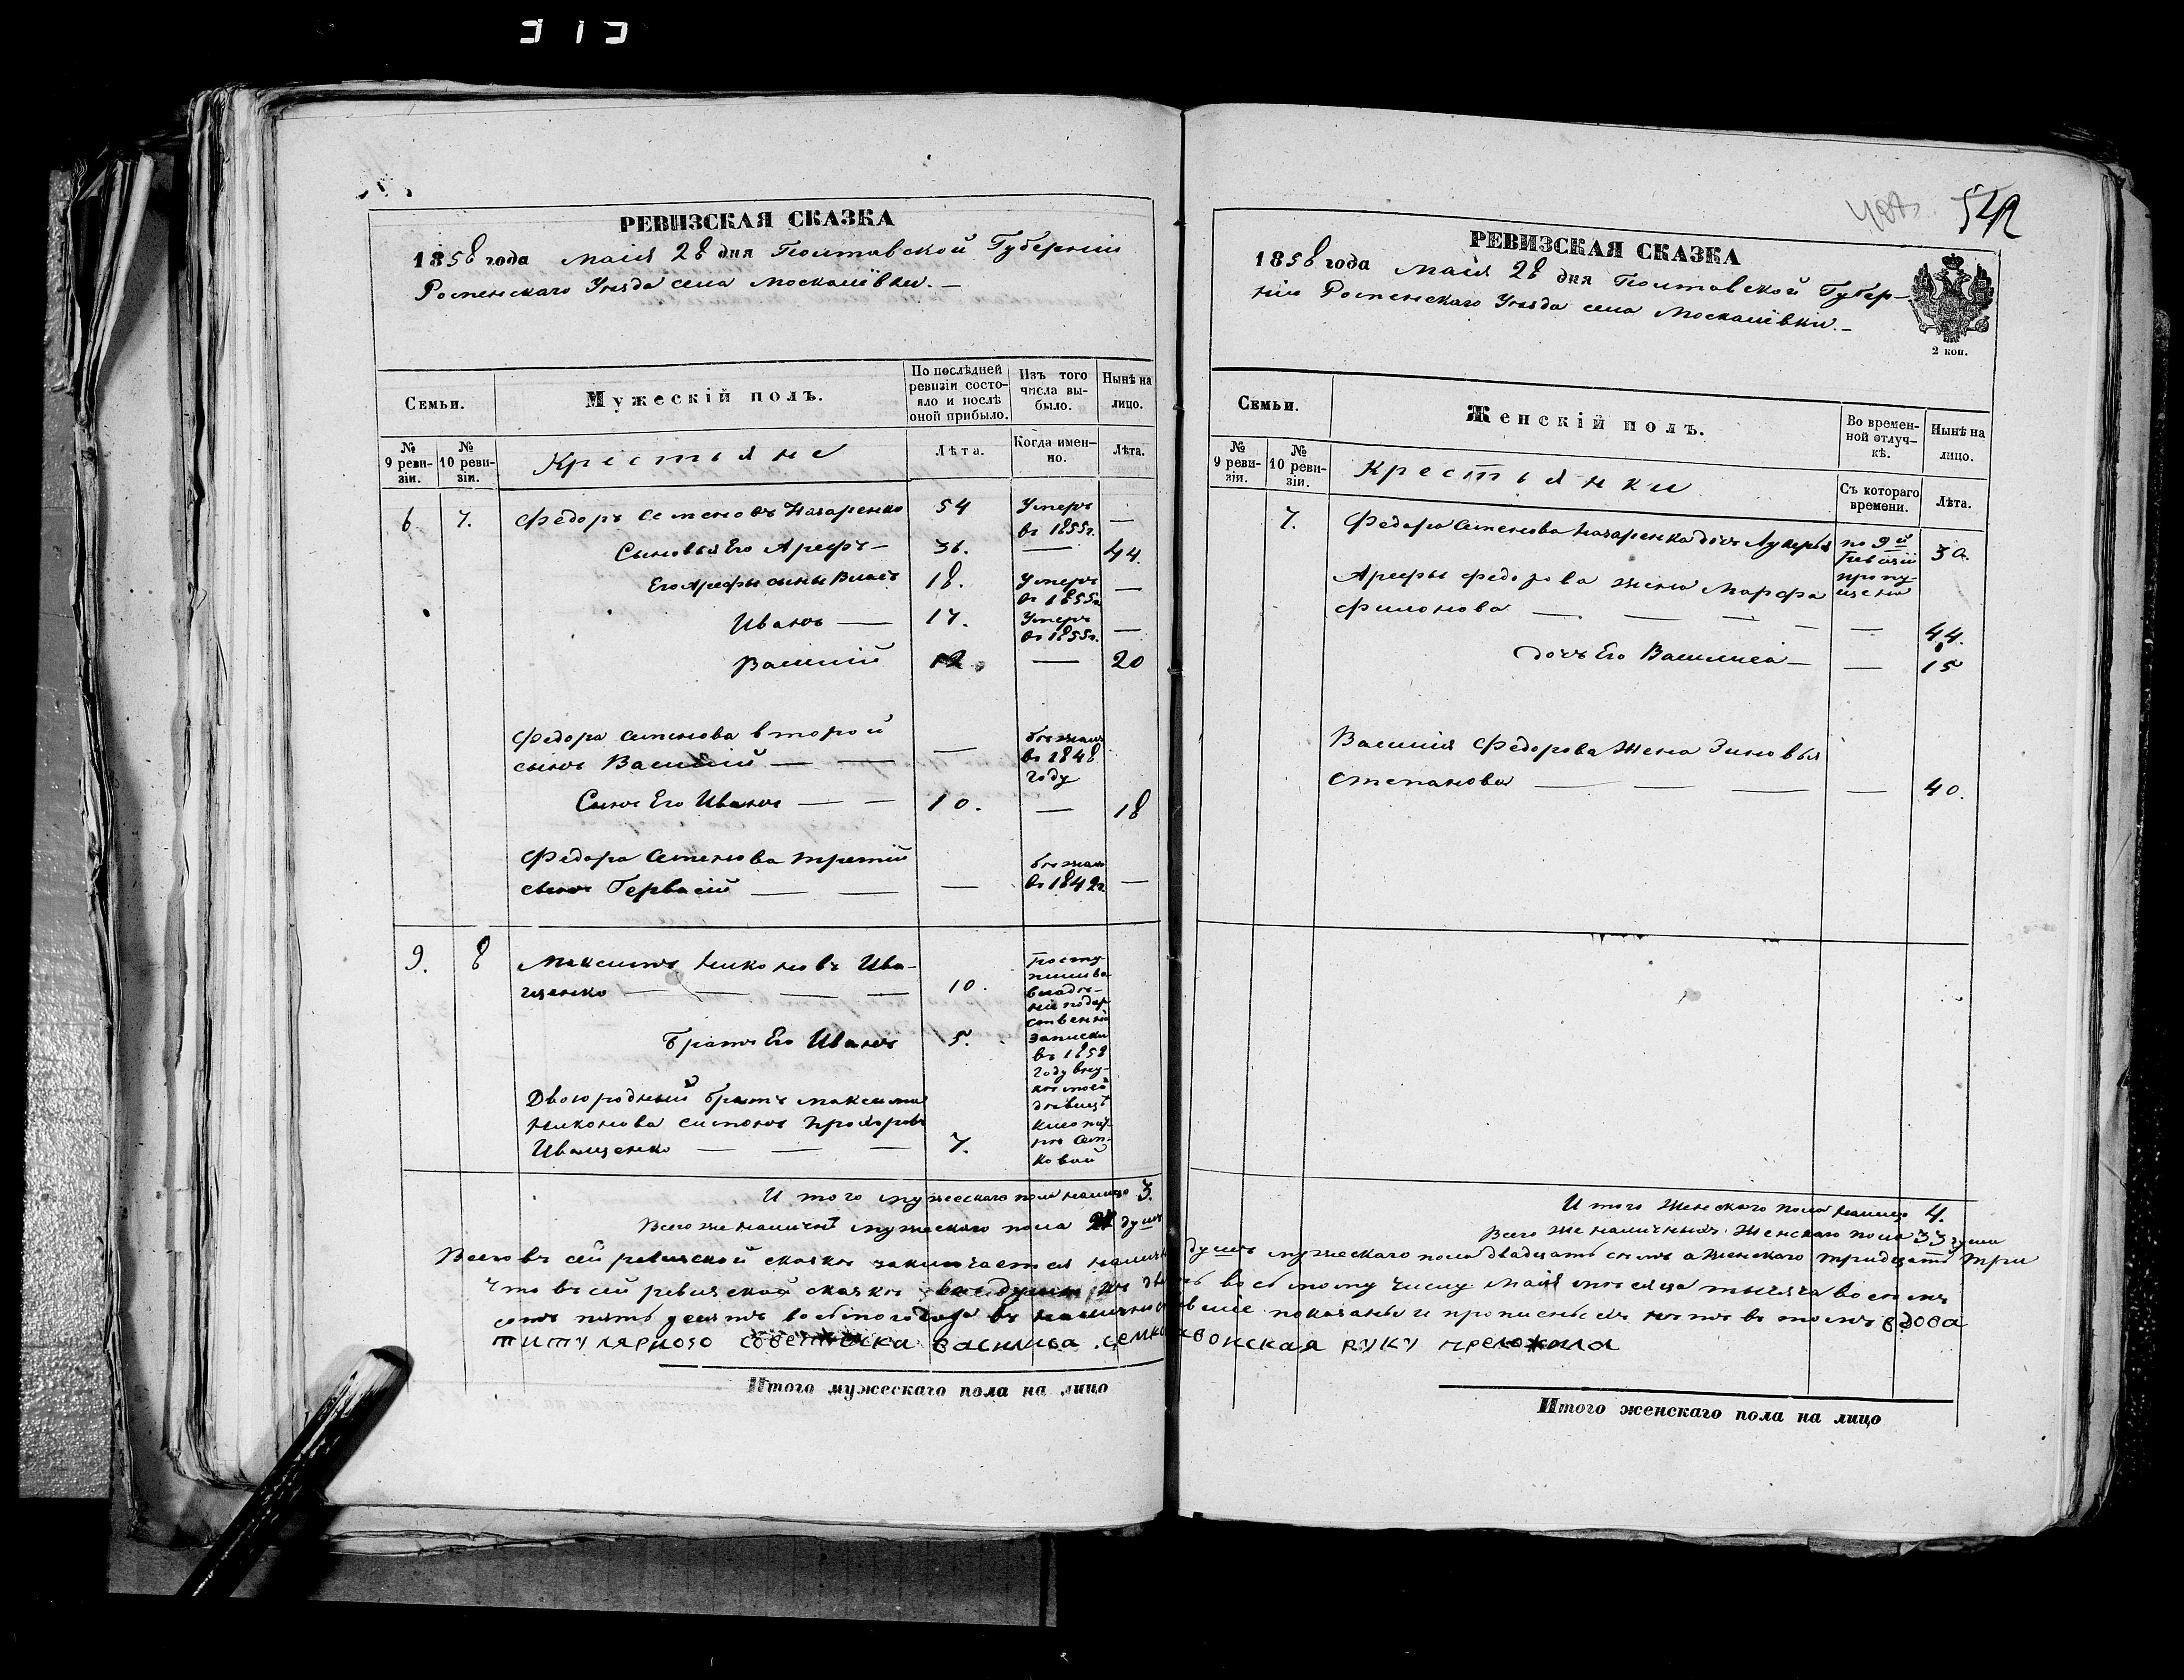 РЕВИЗСКАЯ СКАЗКА
1858 года маія 28 дня Полтавской Губерніи
Роменскаго Уѣзда села Москалівки.
Семьи.
Мужескій полъ.
По послѣдней ревизіи состояло и послѣ оной прибыло.
Изъ того числа выбыло.
Нынѣ на лицо.
№ 9 ревизіи.
№ 10 ревизіи.
Крестьяне
Лѣта.
Когда именно.
Лѣта.
6. 7. Федоръ Семеновъ Назаренко 54 Умеръ въ 1855г. —
Сыновья Его Арефъ — 36. — 44.
Его Арефы сыны Власъ 18. Умеръ въ 1855г. —
Иванъ — 17. Умеръ въ 1855г. —
Василій 12. — 20
Федора Семенова второй
сынъ Василій — — — бѣжалъ въ 1848 году
Сынъ Его Иванъ — — 10. — 18
Федора Семенова третій
сынъ Гервасій — — — бѣжалъ въ 1842г. —
9. 8 Максимъ Никоновъ Ива-
щенко — — — — 10.
Братъ Его Иванъ 5.
Двоюродный братъ Максима
Никонова Симонъ Прохоровъ
Иващенко — — — 7.
Посту-
пили во
владѣ-
ніе по дар-
ственной
записки
въ 1858
году
дѣвицѣ
И того мужескаго пола налицо 3.
Всего же наличнихъ мужескаго пола 27 душъ
РЕВИЗСКАЯ СКАЗКА
1858 года маія 28 дня Полтавской Губер-
ніи Роменскаго Уѣзда села Москалівки.
2 коп.
Семьи.
Женскій полъ.
Во временной отлучкѣ.
Нынѣ на лицо.
№ 9 ревизіи.
№ 10 ревизіи.
Крестьянки
Съ котораго времени.
Лѣта.
7. Федора Семенова Назаренка дочь Лукерья по 9й Ревизіи пропущена 30.
Арефы Федорова жена Марфа
Филонова — — — — — 44.
дочь Его Василиса — — 15
Василія Федорова жена Зиновья
Степанова — — — — 40.
И того Женского пола налицо 4.
Всего же наличныхъ Женскаго пола 33 души
Всего въ сей ревизской сказкѣ заключается наличныхъ душъ мужескаго пола двадцать семъ а женскаго тридцать три
Что въ сей ревизской сказкѣ всѣ души къ двадцать восьмому числу маія мѣсяца тысяча восемь
сотъ пятьдесятъ восьмого года въ наличности бывшіе показаны и прописныхъ нѣтъ въ томъ вдова
титулярного советника василиса руку преложила
Итого мужескаго пола на лицо
Итого женскаго пола на лицо